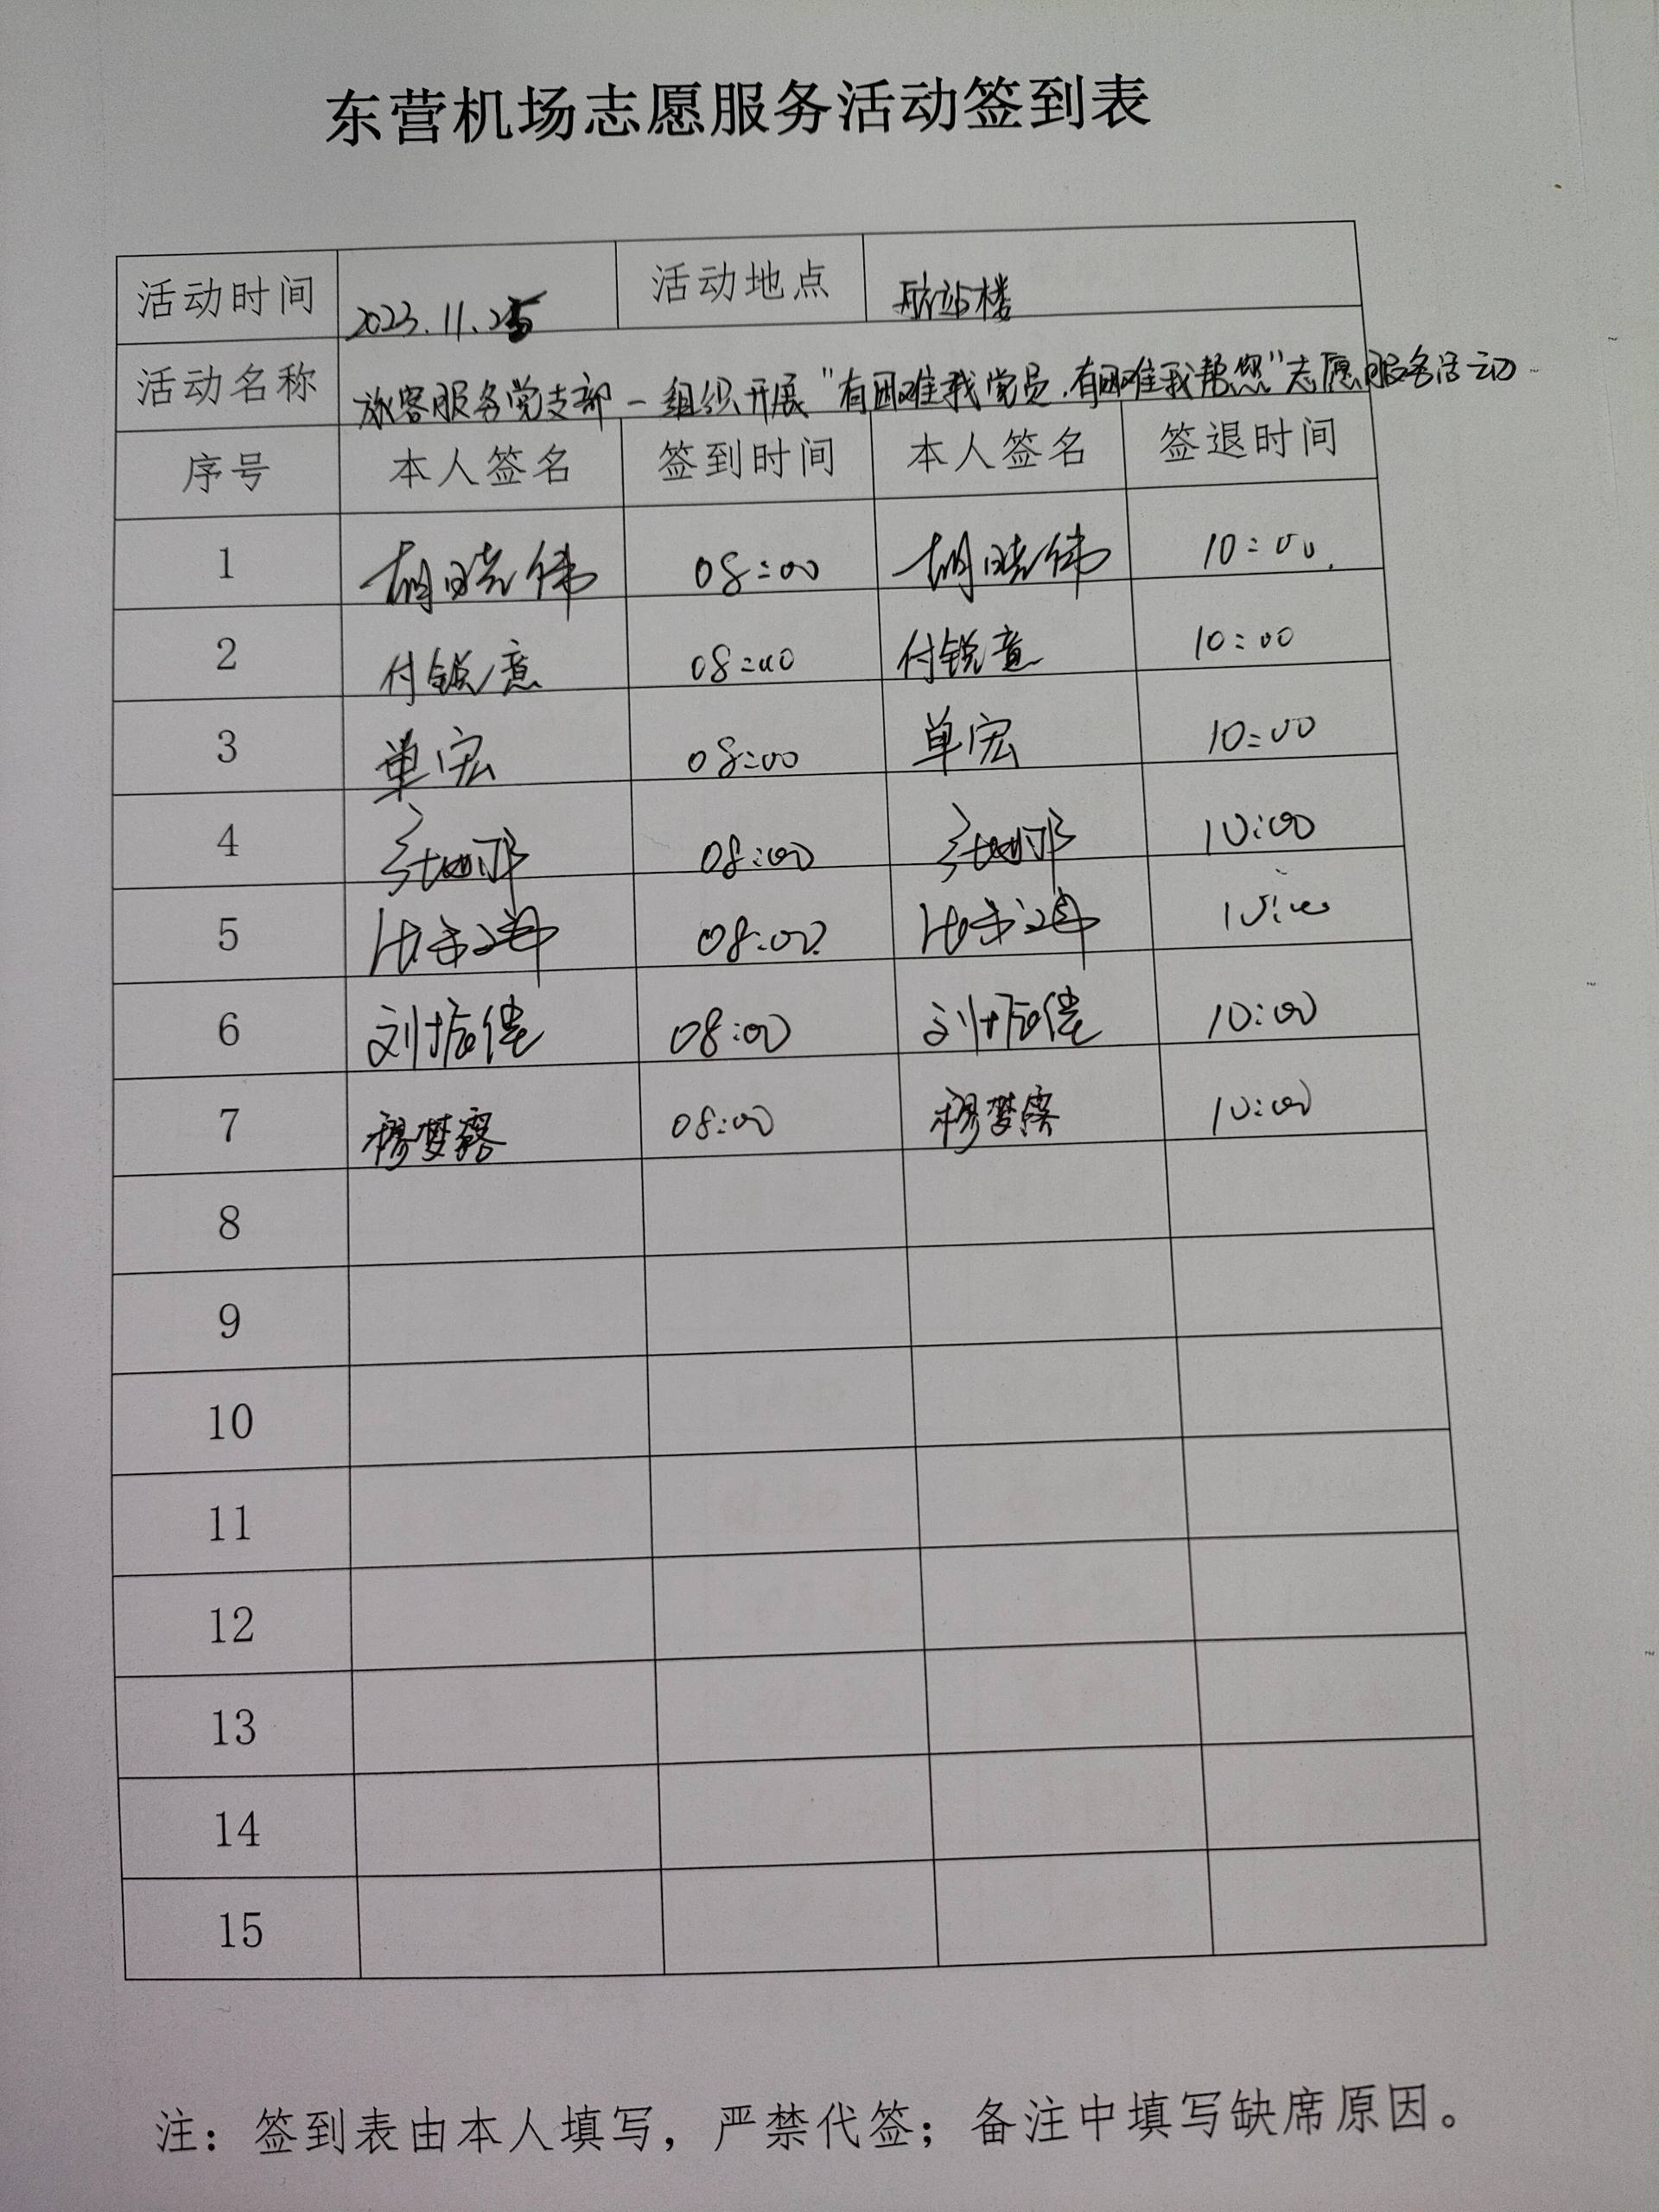 东营机场志愿服务活动签到表
活动时间 2023.11.25 活动地点 航站楼
活动名称 旅客服务党支部-组织开展"有困难找党员,有困难我帮您"志愿服务活动
序号 本人签名 签到时间 本人签名 签退时间
1 胡晓伟 08:00 胡晓伟 10:00
2 付锐意 08:00 付锐意 10:00
3 单宏 08:00 单宏 10:00
4 08:00 10:00
5 08:00 10:00
6 刘振佳 08:00 刘振佳 10:00
7 穆梦露 08:00 穆梦露 10:00
8
9
10
11
12
13
14
15
注：签到表由本人填写，严禁代签；备注中填写缺席原因。